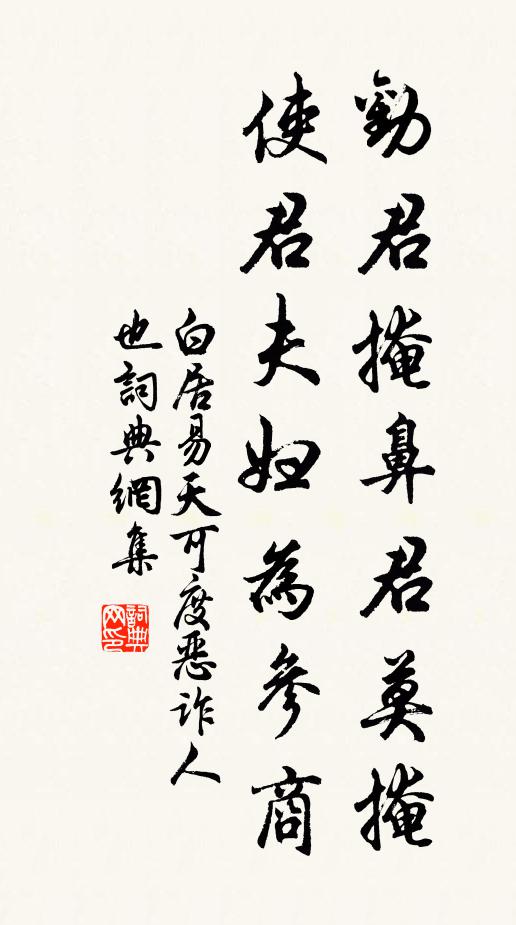 勸君掩鼻君莫掩
使君夫婦為參商
白居易天可度惡詐人
也詞典網集
詞典
网印